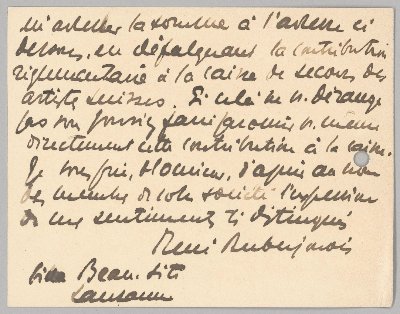 m'adresser la somme à l'adresse ci
dessous, en défalquant la contribution
réglementaire à la caisse de secours des
artistes suisses. Si cela ne v. dérange
pas vous pouvez faire parvenir v. même
directement cette contribution à la caisse.
Je vous prie, Monsieur, d'agréer au nom
des membres de votre société l'expression
de mes sentiments ts distingués
René Auberjonois
Beau-Site
Lausanne